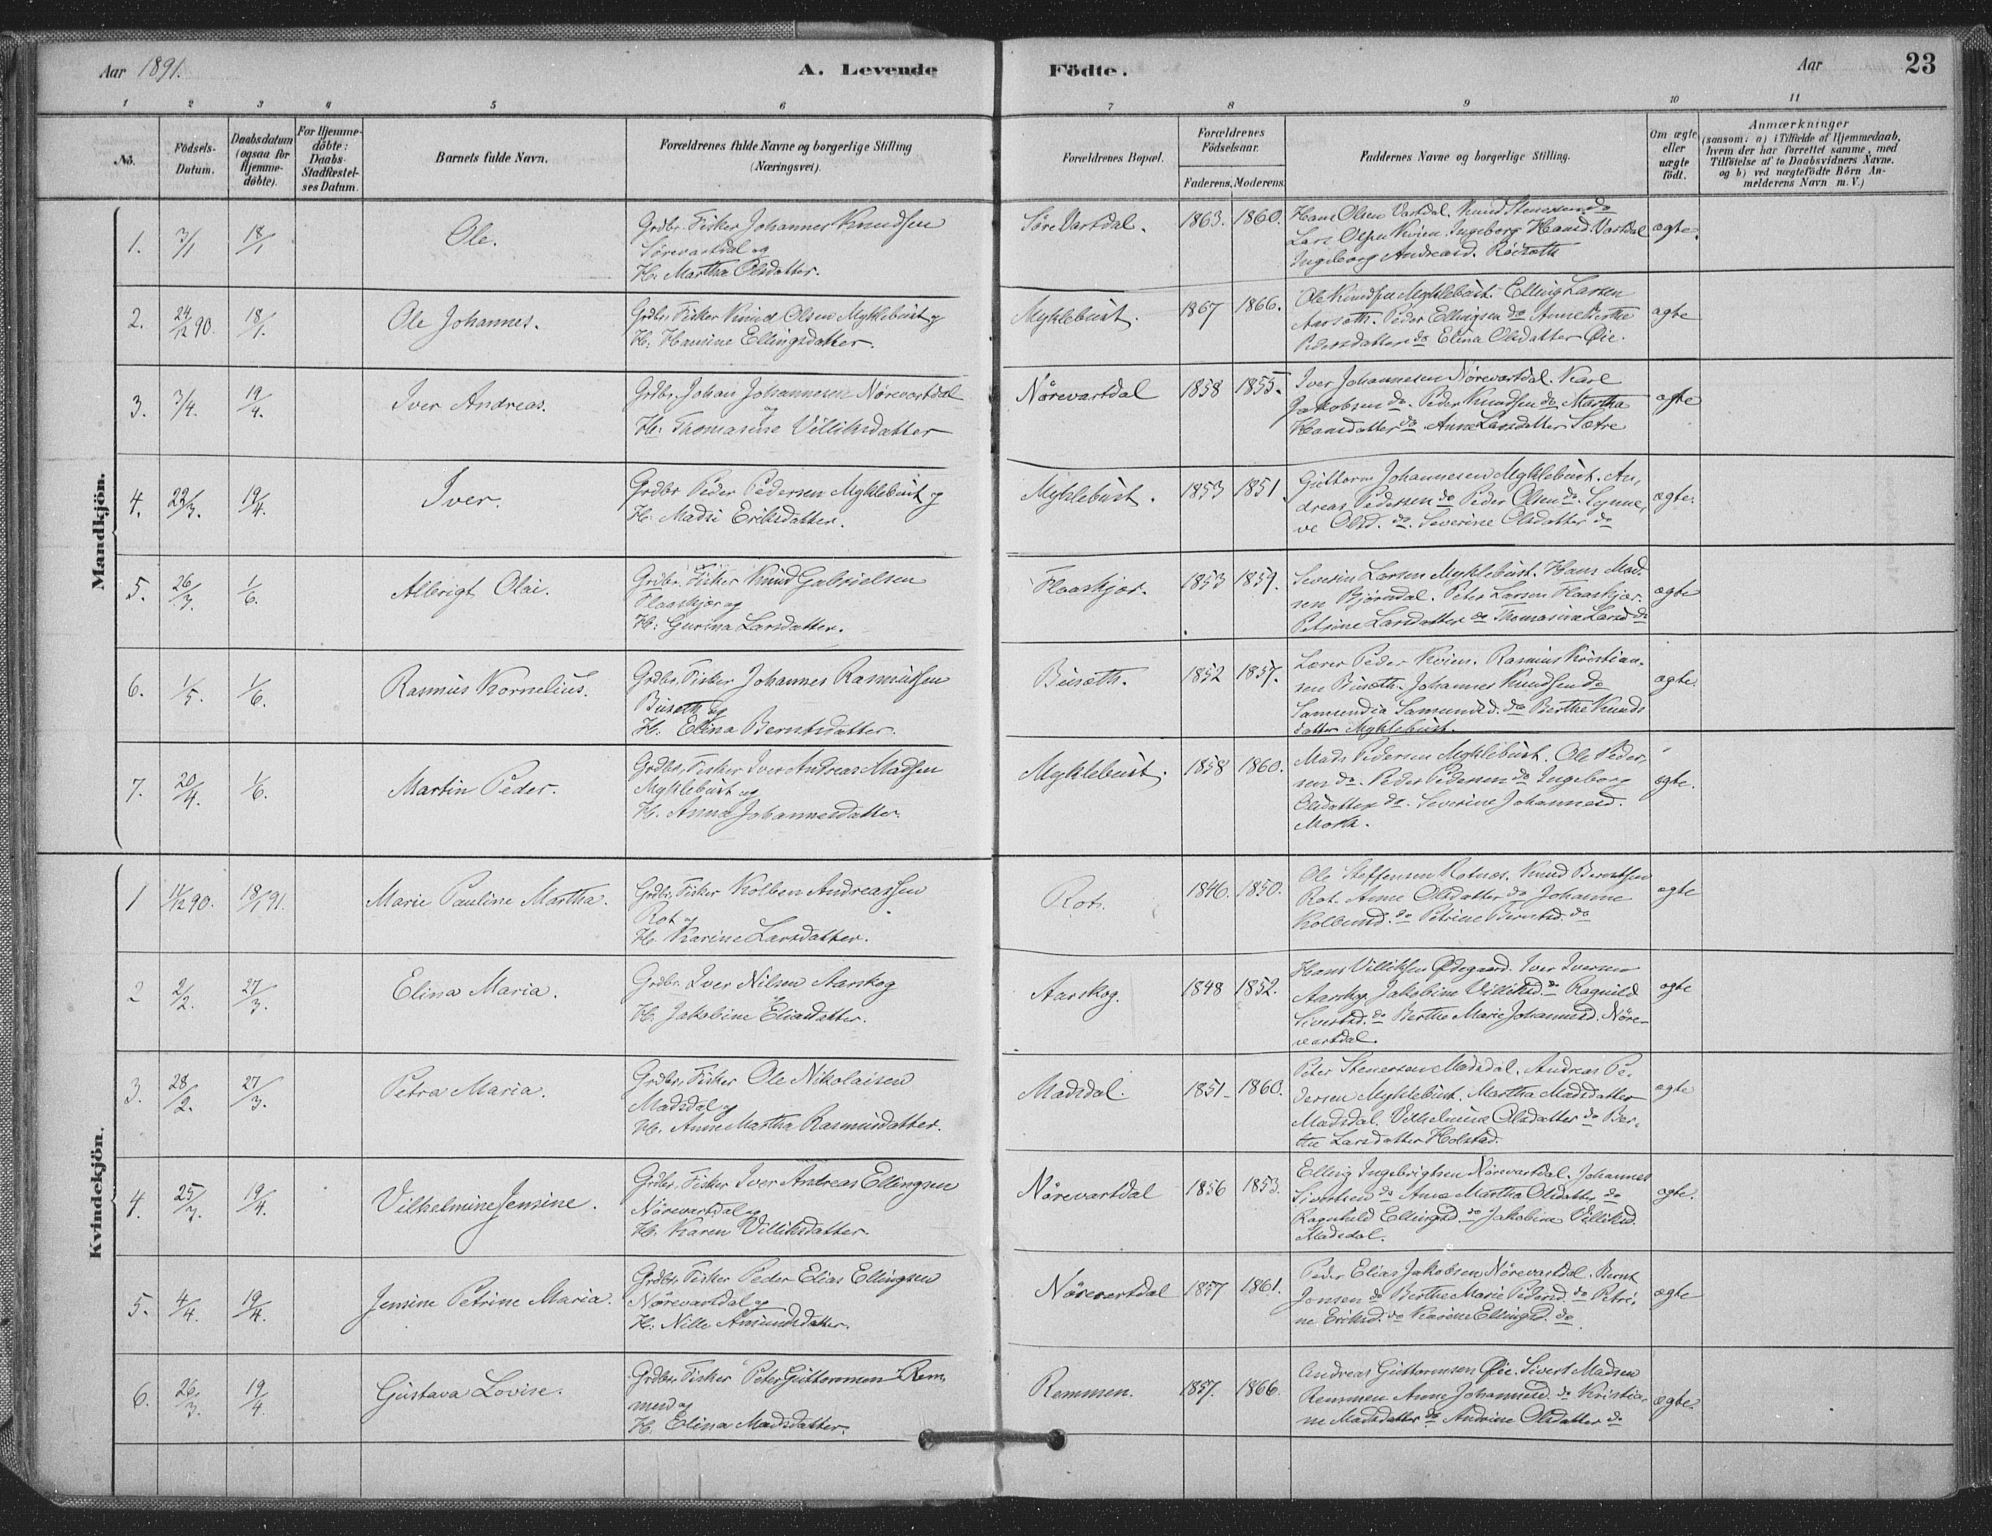 Aar 1891. A. Levende Födte. Aar 23
1 2 3 4 5 6 7 8 9 10 11
No.
Födsels-
Datum.
Daabsdatum
(ogsaa for
Hjemme-
döbte).
For Hjemme-
döbte:
Daabs-
Stadfæstel-
ses Datum.
Barnets fulde Navn.
Forældrenes fulde Navne og borgerlige Stilling
(Næringsvei).
Forældrenes Bopæl.
Forældrenes
Födselsaar.
Faderens. Moderens.
Faddernes Navne og borgerlige Stilling.
Om ægte
eller
uægte
födt.
Anmærkninger
(saasom: a) i Tilfælde af Hjemmedaab,
hvem der har forrettet samme, med
Tilföielse af to Daabsvidners Navne.
og b) ved uægtefödte Börn An-
melderens Navn m. V.)
Mandkjön.
1. 3/1 18/1 Ole.
Grdbr. Fisker Johannes Knudsen
Sørevartdal og
H. Martha Olsdatter.
Søre Vartdal. 1863. 1860.
Hans Olsen Vartdal. Knud Stenersen do
Lars Olsen Kvien. Ingeborg Hansd. Vartdal
Ingeborg Andreasd. Röiseth
ægte.
2. 24/12 90. 18/1. Ole Johannes.
Grdbr. Fisker Knud Olsen Myklebust og
H. Hansine Ellingsdatter.
Myklebust. 1867 1866.
Ole Knudsen Myklebust. Elling Larsen
Aarseth. Peder Ellingsen do Anne Berthe
Pedersdatter do Elina Olsdatter Øie.
ægte
3. 3/4. 19/4. Iver Andreas.
Grdbr. Johan Johannesen Nørevartdal
og
H. Thomasine Villiksdatter
Nørevartdal 1858 1855.
Iver Johannesen Nørevartdal. Karl
Jakobsen do. Peder Knudsen do Martha
Hansdatter do Anne Larsdatter Sætre
ægte
4. 22/3. 19/4. Iver.
Grdbr. Peder Pedersen Myklebust og
H. Madsi Eriksdatter.
Myklebust. 1853 1851
Guttorm Johannesen Myklebust. An-
dreas Pedersen do Peder Olsen do. Synne-
ve Olsd. do. Severine Olsdatter do
ægte.
5. 26/3. 1/6. Albrigt Olai.
Grdbr. Fisker Knud Gabrielsen
Flaaskjær og
H: Gurina Larsdatter.
Flaaskjær. 1853 1859.
Severin Larsen Myklebust. Hans Mad-
sen Bjørndal. Peter Larsen Flaaskjær.
Petrine Larsdatter do Thomasine Larsd do
ægte
6. 1/5. 1/6. Rasmus Kornelius.
Grdbr. Fisker Johannes Rasmussen
Buseth og
H. Elina Berntsdatter.
Buseth. 1852 1857.
Lærer Peder Kvien. Rasmus Kristian-
sen Buseth. Johannes Knudsen do
Samundia Samundsd. do Berthe Knuds
datter Myklebust.
ægte.
7. 20/4. 1/6. Martin Peder.
Grdbr. Fisker Iver Andreas Madsen
Myklebust og
H. Anna Johannesdatter.
Myklebust. 1858 1860.
Mads Pedersen Myklebust. Ole Peder-
sen do. Peder Pedersen do Ingeborg
Olsdatter do. Severine Johannesd.
Mork.
ægte.
Kvindekjön.
1 11/12 90. 18/1 91. Marie Pauline Martha.
Grdbr. Fisker Kolben Andreassen
Rot og
H. Karine Larsdatter.
Rot. 1846. 1850.
Ole Steffensen Rotnes. Knud Berntsen
Rot. Anne Olsdatter do Johanne
Kolbensd. do Petrine Berntsd. do
ægte
2 2/2. 27/3. Elina Maria.
Grdbr. Iver Nilsen Aarskog
og
H. Jakobine Eliasdatter.
Aarskog. 1848 1852.
Hans Villiksen Ødegaard. Iver Iversen
Aarskog. Jakobine Villiksd. do Ragnild
Sivertsd. do Berthe Marie Johannesd. Nøre-
vartdal.
ægte
3. 28/2. 27/3. Petra Maria.
Grdbr. Fisker Ole Nikolaisen
Madsdal og
H. Anne Martha Rasmusdatter.
Madsdal. 1851 1860.
Peter Stenersen Madsdal. Andreas Pe-
dersen Myklebust. Martha Madsdatter
Madsdal. Vilhelmine Olsdatter do Ber-
the Larsdatter Holstad.
ægte
4. 25/3. 19/4. Vilhelmine Jensine.
Grdbr. Fisker Iver Andreas Ellingsen
Nørevartdal og
H. Karen Villiksdatter.
Nørevartdal 1856 1853.
Elling Ingebrigtsen Nørevartdal. Johannes
Sivertsen do Anne Martha Olsdatter do
Ragnhild Ellingsd. do Jakobine Villiksd.
Madsdal.
ægte.
5. 4/4. 19/4. Jensine Petrine Maria.
Grdbr. Fisker Peder Elias Ellingsen
Nørevartdal og
H. Nille Amundsdatter.
Nørevartdal 1857 1861.
Peder Elias Jakobsen Nørevartdal. Bernt
Jonsen do Berthe Marie Pedersd. do Petri-
ne Eriksd. do Karine Ellingsd. do
ægte
6. 26/3. 19/4. Gustava Lovise.
Grdbr. Fisker Peter Guttormsen Rem-
men og
H. Elina Madsdatter.
Remmen. 1857. 1866.
Andreas Guttormsen Øie. Sivert Madsen
Remmen Anne Johannesd. do Kristia-
ne Madsdatter do Andrine Olsdatter do
ægte.